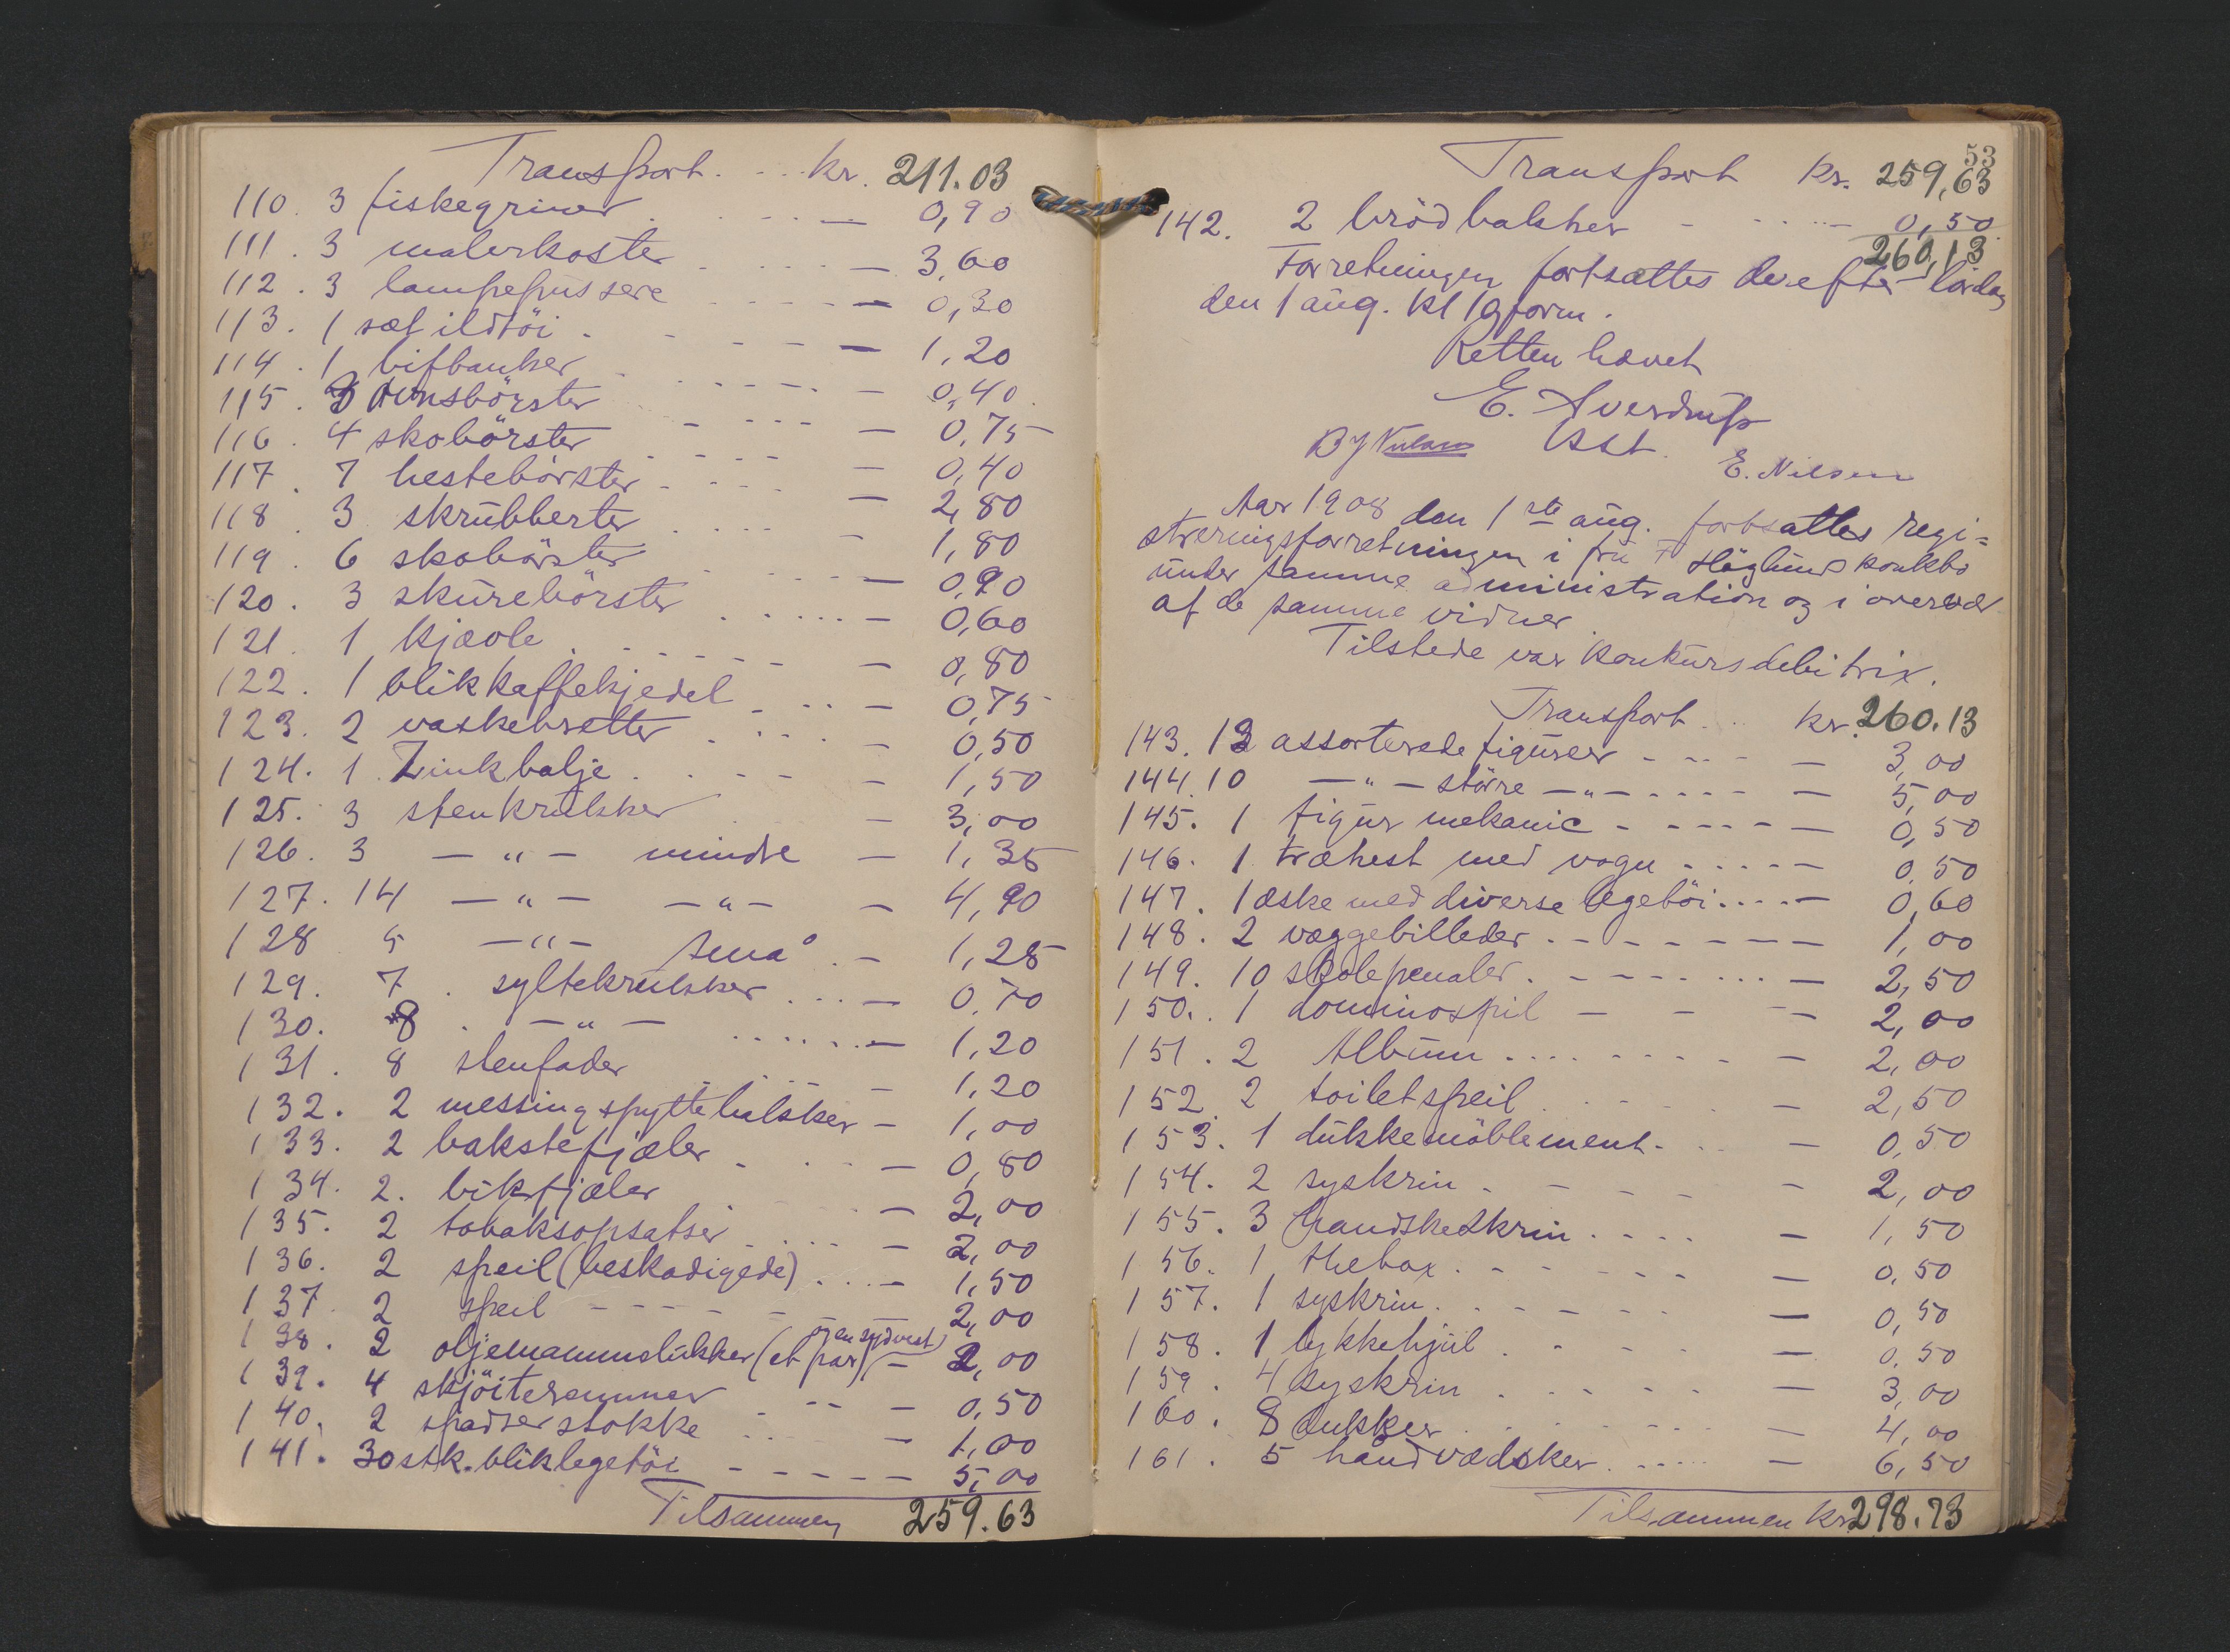 Transport. . . kr. 211.03
110. 3 fiskegriner . . . . — 0,90
111. 3 malerkoster . . . . — 3,60
112. 3 lampepussere . . . . — 0,30
113. 1 sæt ildtöi . - - - - — 1,20
114. 1 bifbanker . . - - - — 0,40
115. 3 ovnsbörster - - - - — 0,75
116. 4 skobörster . - - - - — 0,40
117. 7 hestebörster - - - - — 2,80
118. 3 skrubberter . . . . — 1,80
119. 6 skobörster . . . . — 0,90
120. 3 skurebörster . . . . — 0,60
121. 1 kjaole . - - - - — 0,80
122. 1 blikkaffekjedel - - - — 0,75
123. 2 vaskebretter . . . . — 0,50
124. 1 Zinkbalje . . - - — 1,50
125. 3 stenkrukker . — 3,00
126. 3 — " — mindre — 1,35
127. 14 — " — — " — — 4,90
128 5 — " — små . — 1,25
129. 7 . syltekrukker . . . — 0.70
130. 8 . — " — . . . . . . — 1,20
131. 8 stenfader . . . . — 1,20
132. 2 messing spyttebakker — 1,00
133. 2 bakstefjæler - . . — 0,80
134. 2. bikefjæler . . — 2,00
135. 2 tobaksopsatser . . . . — 2,00
136. 2 speil (beskadigede) . . . — 1,50
137. 2 speil - - - - - — 2,00
og en sydvest)
138. 2 oljemannsdukker (et par) — 2,00
139. 4 skjöiteremmer . -- — 0,50
140. 2 spadserstokke . . . — 1,00
141. 30 stk. bliklegetöi - - - - — 5,00
Tilsammen 259.63
53
Transport kr. 259,63
142. 2 brödbakker - . . . . — 0,50
260,13
Forretningen fortsattes derefter lördag
den 1 aug. kl 10 form.
Retten hævet
E. Sverdrup
Asst.
E. Nilsen
Aar 1908 den 1ste aug. fortsattes regi=
streringsforretningen i fru F Höglunds konkbo
under samme administration og i overvær
af de samme vidner
Tilstede var konkursdebitrix.
Transport . . kr. 260.13
143. 12 assorterede figurer - - - - — 3,00
144. 10 — " — större — " — - - - - — 5,00
145. 1 figur mekanic - - - - - — 0,50
146. 1 træhest med vogn . . . . — 0,50
147. 1 æske med diverse legetöi . . . . — 0,60
148. 2 væggebilleder . - - - - - — 1,00
149. 10 skolepenaler . - - - . . . — 2,50
150. 1 dominospil — - - — 2,00
151. 2 Album . . . . - - - - — 2,00
152. 2 toiletspeil . . . . . — 2,50
153. 1 dukkemöblement . . — 0,50
154. 2 syskrin . - - - - — 2,00
155. 3 handskeskrin . . . . — 1,50
156. 1 thebox . - - - - - — 0,50
157. 1 syskrin . - - - - — 0,50
158. 1 lykkehjul . - - - — 0,50
159. 4 syskrin . . . . . — 3,00
160. 8 dukker . . . . . . — 4,00
161. 5 håndvædsker . . . . . — 6,50
Tilsammen kr. 298.73